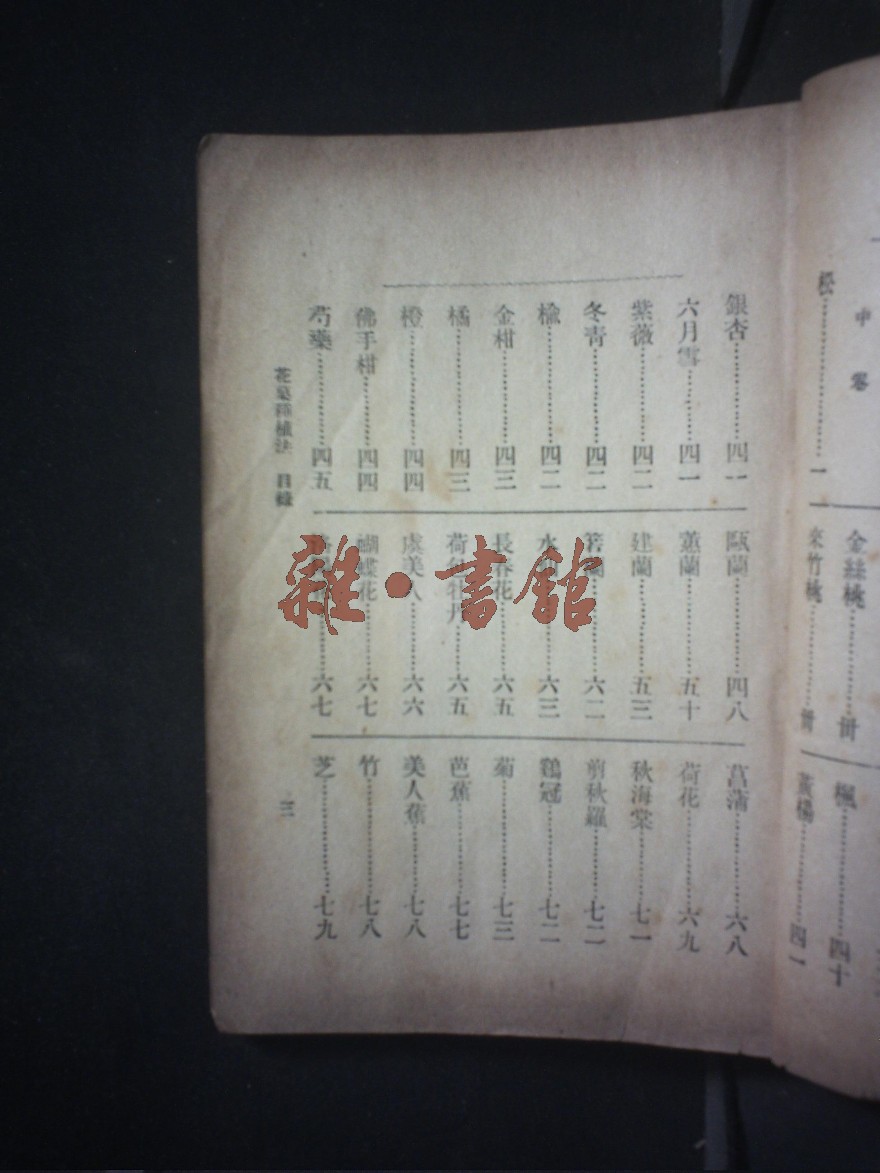 中卷
松……一
金絲桃……卌
夾竹桃……卌
楓……四十
黃楊……四一
銀杏……四一
六月雪……四一
紫薇……四二
冬青……四二
榆……四二
金柑……四三
橘……四三
橙……四四
佛手柑……四四
芍藥……四五
甌蘭……四八
蕙蘭……五十
建蘭……五三
箬蘭……六二
水……六三
長春花……六五
荷包牡丹……六五
虞美人……六六
蝴蝶花……六七
……六七
菖蒲……六八
荷花……六九
秋海棠……七一
剪秋羅……七二
鷄冠……七二
菊……七三
芭蕉……七七
美人蕉……七八
竹……七八
芝……七九
花菓種植法 目錄
三
雜·書館